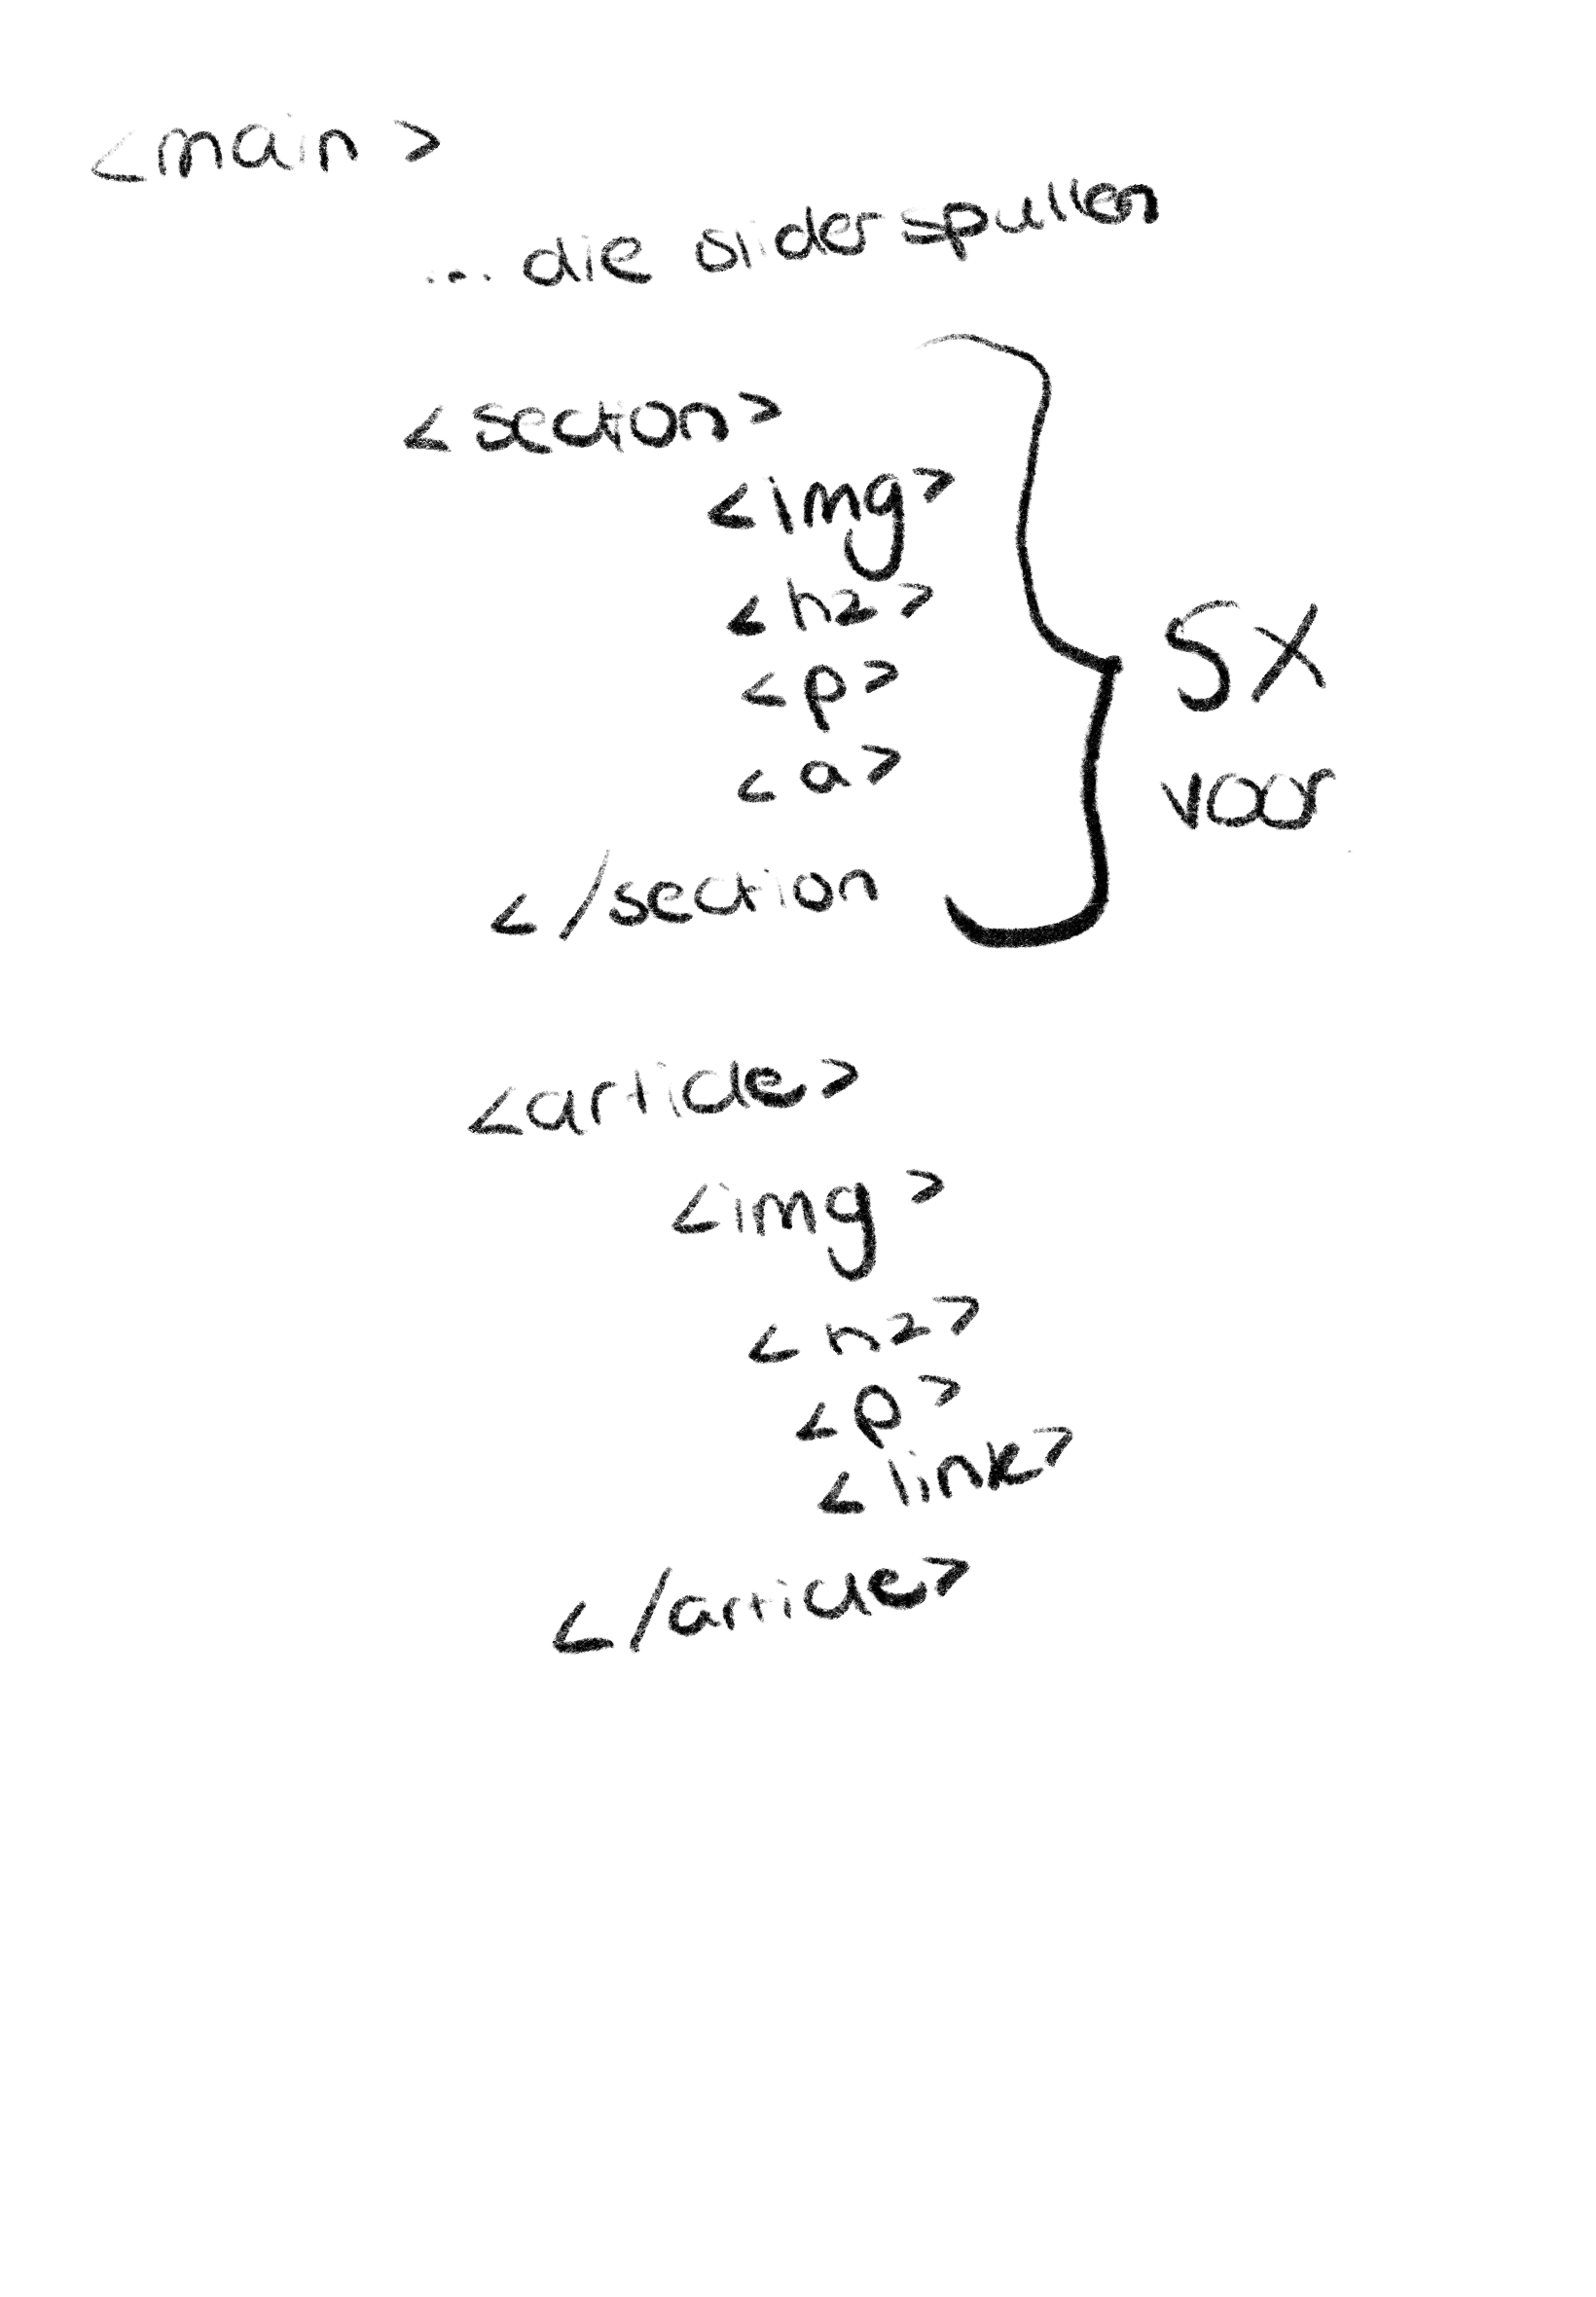 <main>
... die slider spullen
<section>
<img>
<h2>
<p>
<a>
</section
5X
voor
<article>
<img>
<h2>
<p>
<link>
</article>